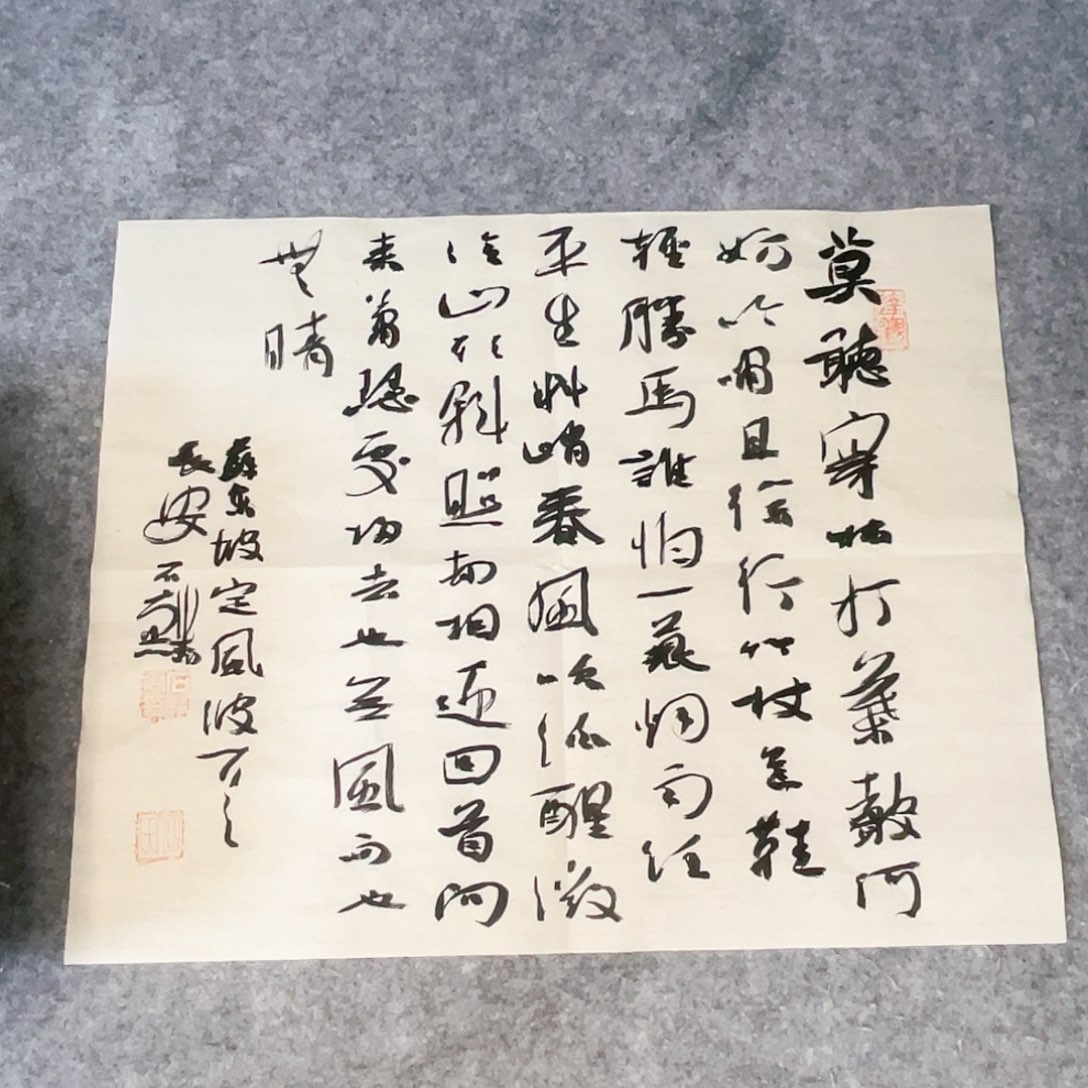 莫聽穿林打葉聲何
妨吟嘯且徐行竹杖芒鞋
輕勝馬誰怕一蓑烟雨任
平生料峭春風吹酒醒微
冷山頭斜照却相迎回首向
来蕭瑟處归去也无風雨也
無晴
蘇東坡定風波
長安石